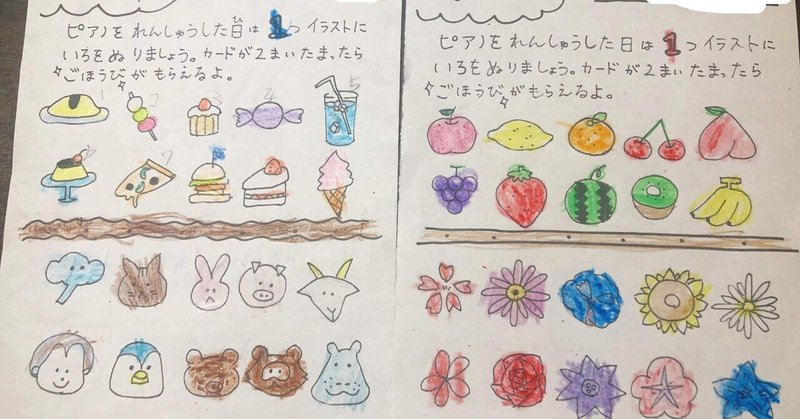 ピアノを れんしゅうした日は 1つ イラストに
ひ
いろをぬりましょう。カードが2まいたまったら
ごほうびが もらえるよ。
1 2 3 4 5
7
ピアノを れんしゅうした日は 1つ イラストに
いろをぬりましょう。カードが2まいたまったら
ごほうびが もらえるよ。